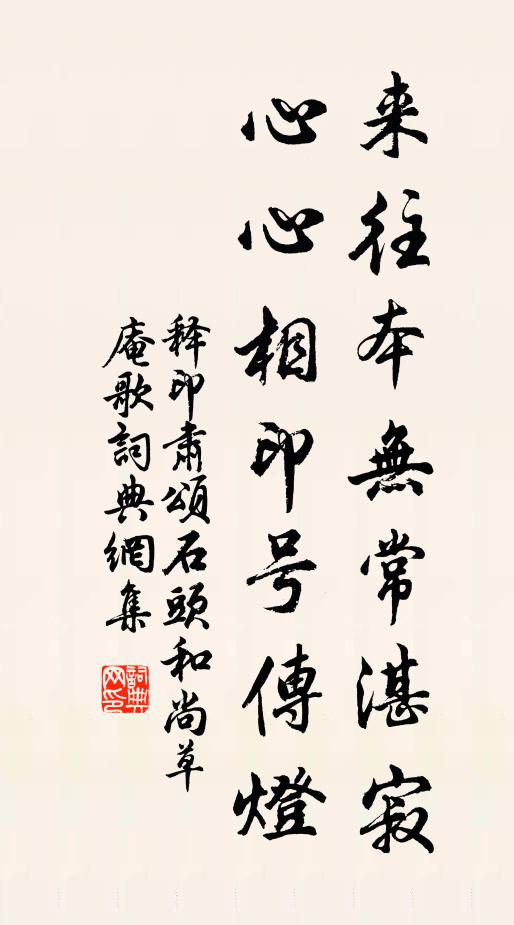 来往本無常湛寂
心心相印号傳燈
释印肃頌石頭和尚草
庵歌詞典網集
詞典网印